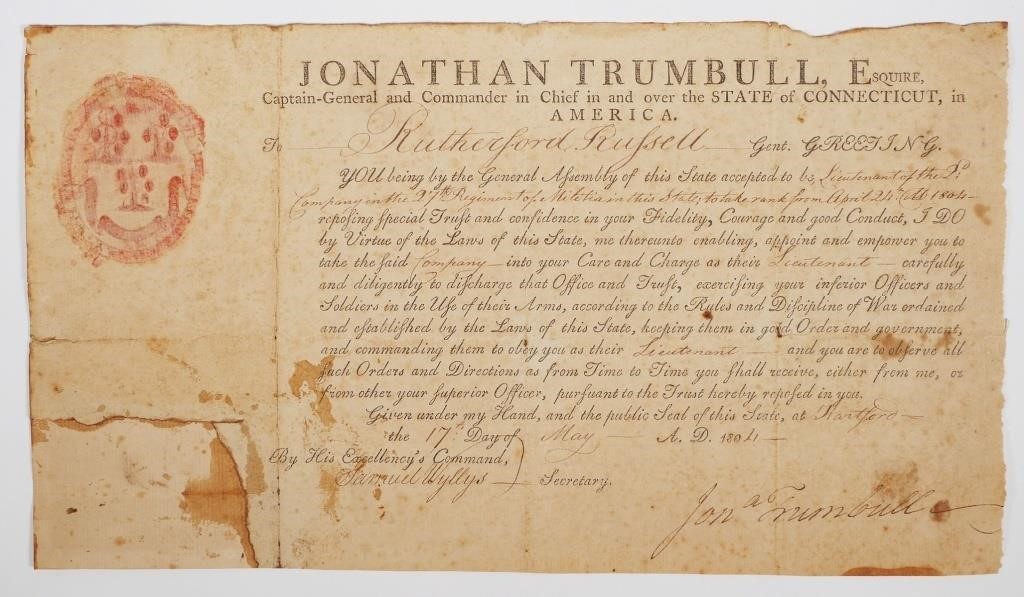 JONATHAN TRUMBULL, ESQUIRE,
Captain-General and Commander in Chief in and over the STATE of CONNECTICUT, in
AMERICA.
To Rutherford Ruſsell Gent. GREETING.
YOU being by the General Aſſembly of this State accepted to be Lieutenant of the 2d
Company in the 27th Regiment of Militia in this State, to take rank from April 24th 1804
repoſing ſpecial Truſt and confidence in your Fidelity, Courage and good Conduct, I DO
by Virtue of the Laws of this State, me thereunto enabling, appoint and empower you to
take the ſaid Company into your Care and Charge as their Lieutenant carefully
and diligently to diſcharge that Office and Truſt, exerciſing your inferior Officers and
Soldiers in the Uſe of their Arms, according to the Rules and Diſcipline of War ordained
and eſtabliſhed by the Laws of this State, keeping them in good Order and government,
and commanding them to obey you as their Lieutenant and you are to obſerve all
ſuch Orders and Directions as from Time to Time you ſhall receive, either from me, or
from other your ſuperior Officer, purſuant to the Truſt hereby repoſed in you.
Given under my Hand, and the public Seal of this State, at Hartford
the 17th Day of May A. D. 1804
By His Excellency's Command,
Samuel Wyllys Secretary.
Jona Trumbull